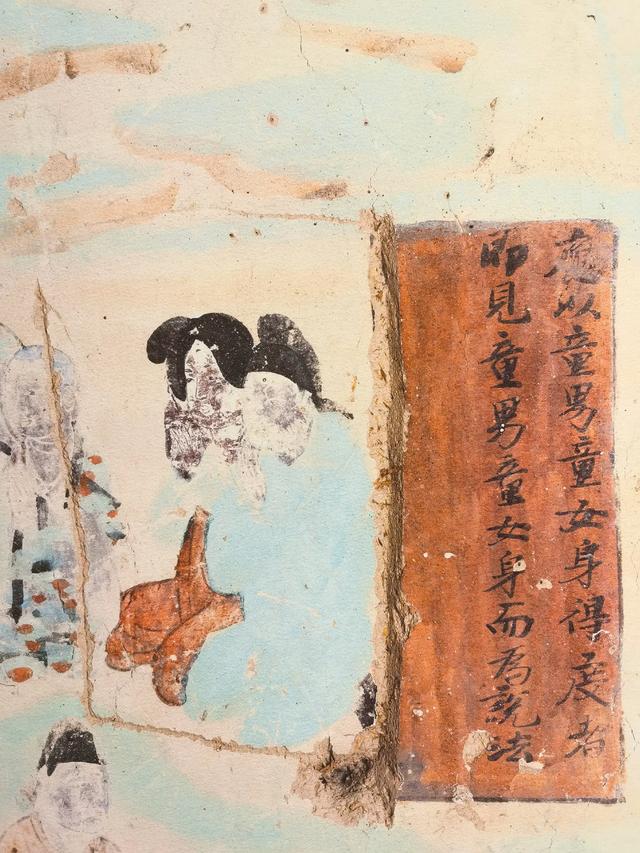 應以童男童女身得度者
即見童男童女身而為說法